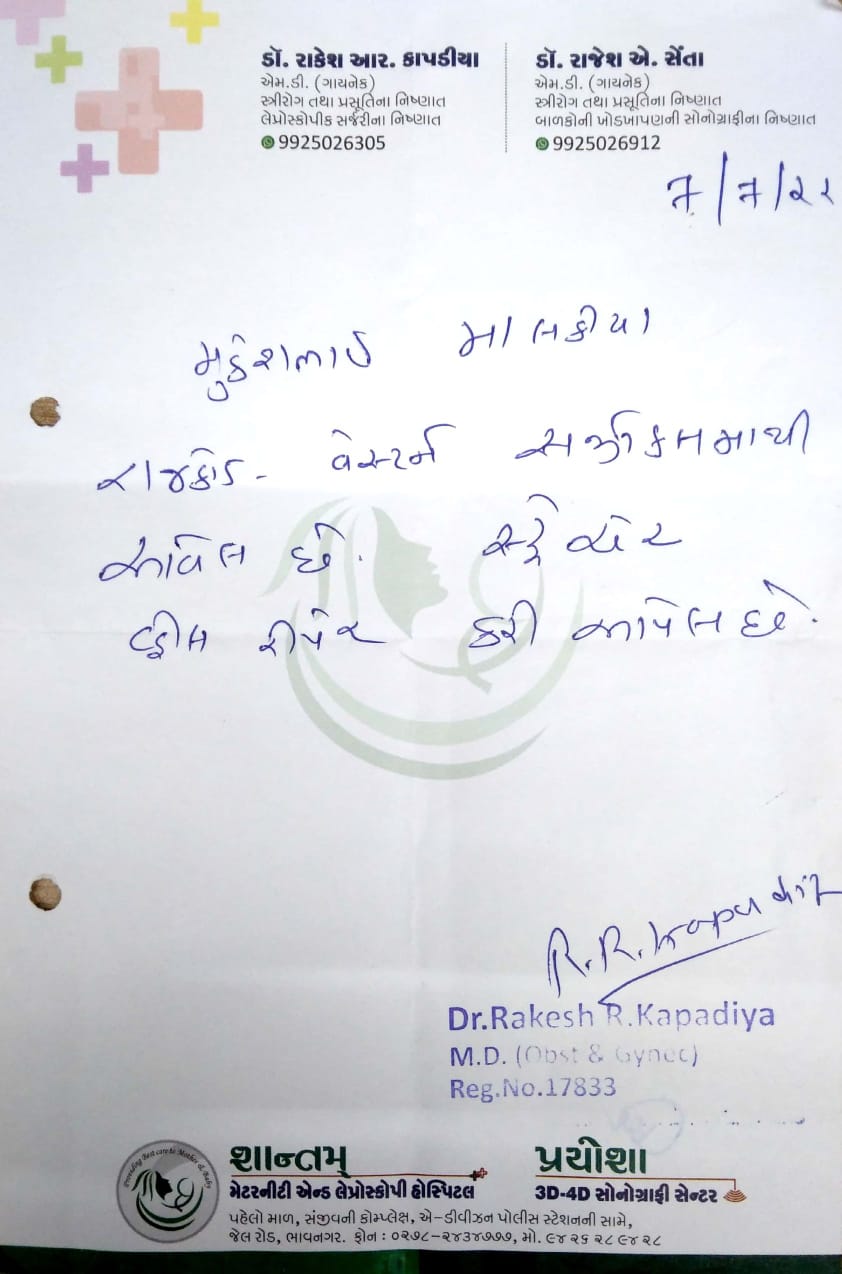 ડૉ. રાકેશ આર. કાપડીયા
એમ.ડી. (ગાયનેક)
સ્ત્રીરોગ તથા પ્રસૂતિના નિષ્ણાત
લેપ્રોસ્કોપીક સર્જરીના નિષ્ણાત
9925026305
ડૉ. રાજેશ એ. સેંતા
એમ.ડી. (ગાયનેક)
સ્ત્રીરોગ તથા પ્રસૂતિના નિષ્ણાત
બાળકોની ખોડખાપણની સોનોગ્રાફીના નિષ્ણાત
9925026912
૭/૭/૨૨
મુકેશભાઈ માલકીયા
રાજકોટ - વેસ્ટર્ન સર્જીકલમાથી
આવેલ છે.
રીપેર કરી આપેલ છે.
R.R. Kapadiya
Dr.Rakesh R.Kapadiya
M.D. (Obst & Gynec)
Reg.No.17833
Providing Best care to Mother & Baby
શાન્તમ્
મેટરનીટી એન્ડ લેપ્રોસ્કોપી હોસ્પિટલ
પ્રયોશા
3D-4D સોનોગ્રાફી સેન્ટર
પહેલો માળ, સંજીવની કોમ્પ્લેક્ષ, એ-ડીવીઝન પોલીસ સ્ટેશનની સામે,
જેલ રોડ, ભાવનગર. ફોન : ૦૨૭૮-૨૪૩૪૭૭૭, મો. ૯૪૨૬ ૨૮ ૯૪ ૨૮